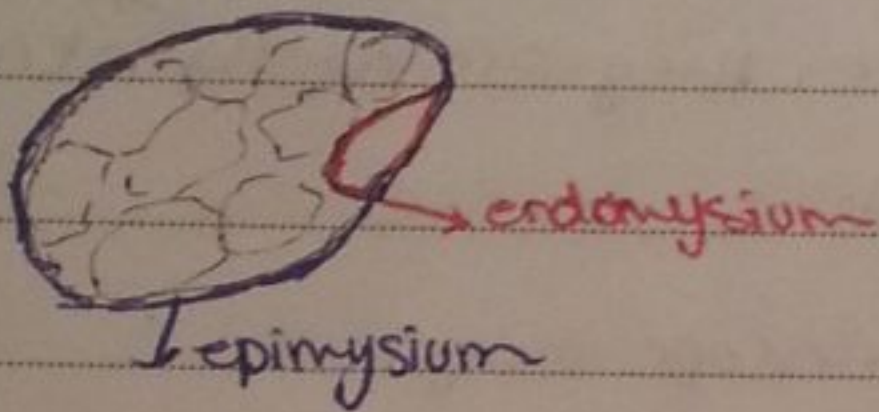 endomysium
epimysium